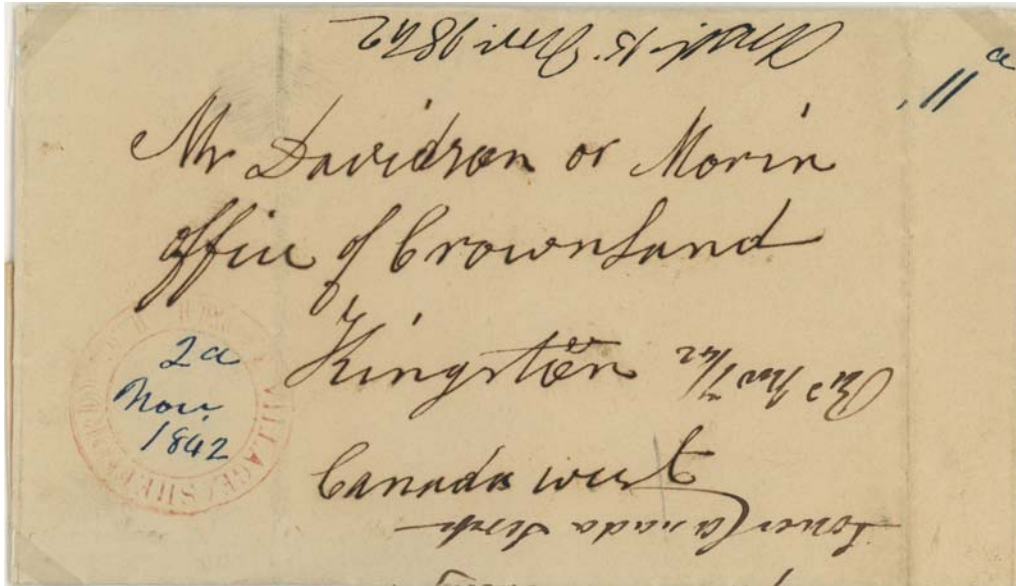 11 a
Mr Davidson or Morin
Office of Crown Land
Kingston
Canada West
2d
Nov.
1842
VILLAGE
Lower Canada